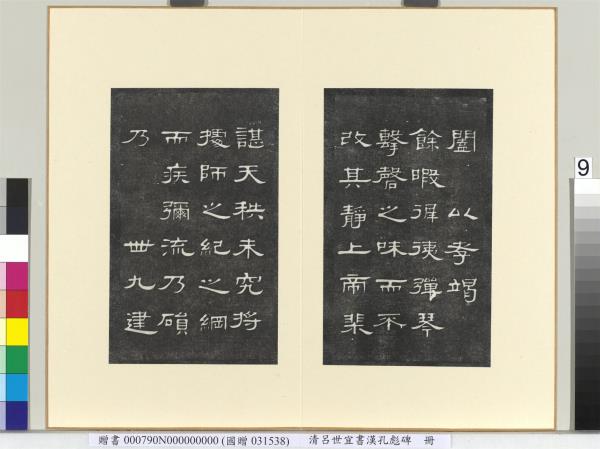 闔 以孝竭
餘暇徲徥彈琴
擊磬之味而不
改其靜上帝棐
諶天秩未究將
據師之紀之綱
而疾彌流乃磒
乃 卌九建
9
贈書 000790N000000000 (國贈 031538) 清呂世宜書漢孔彪碑 冊